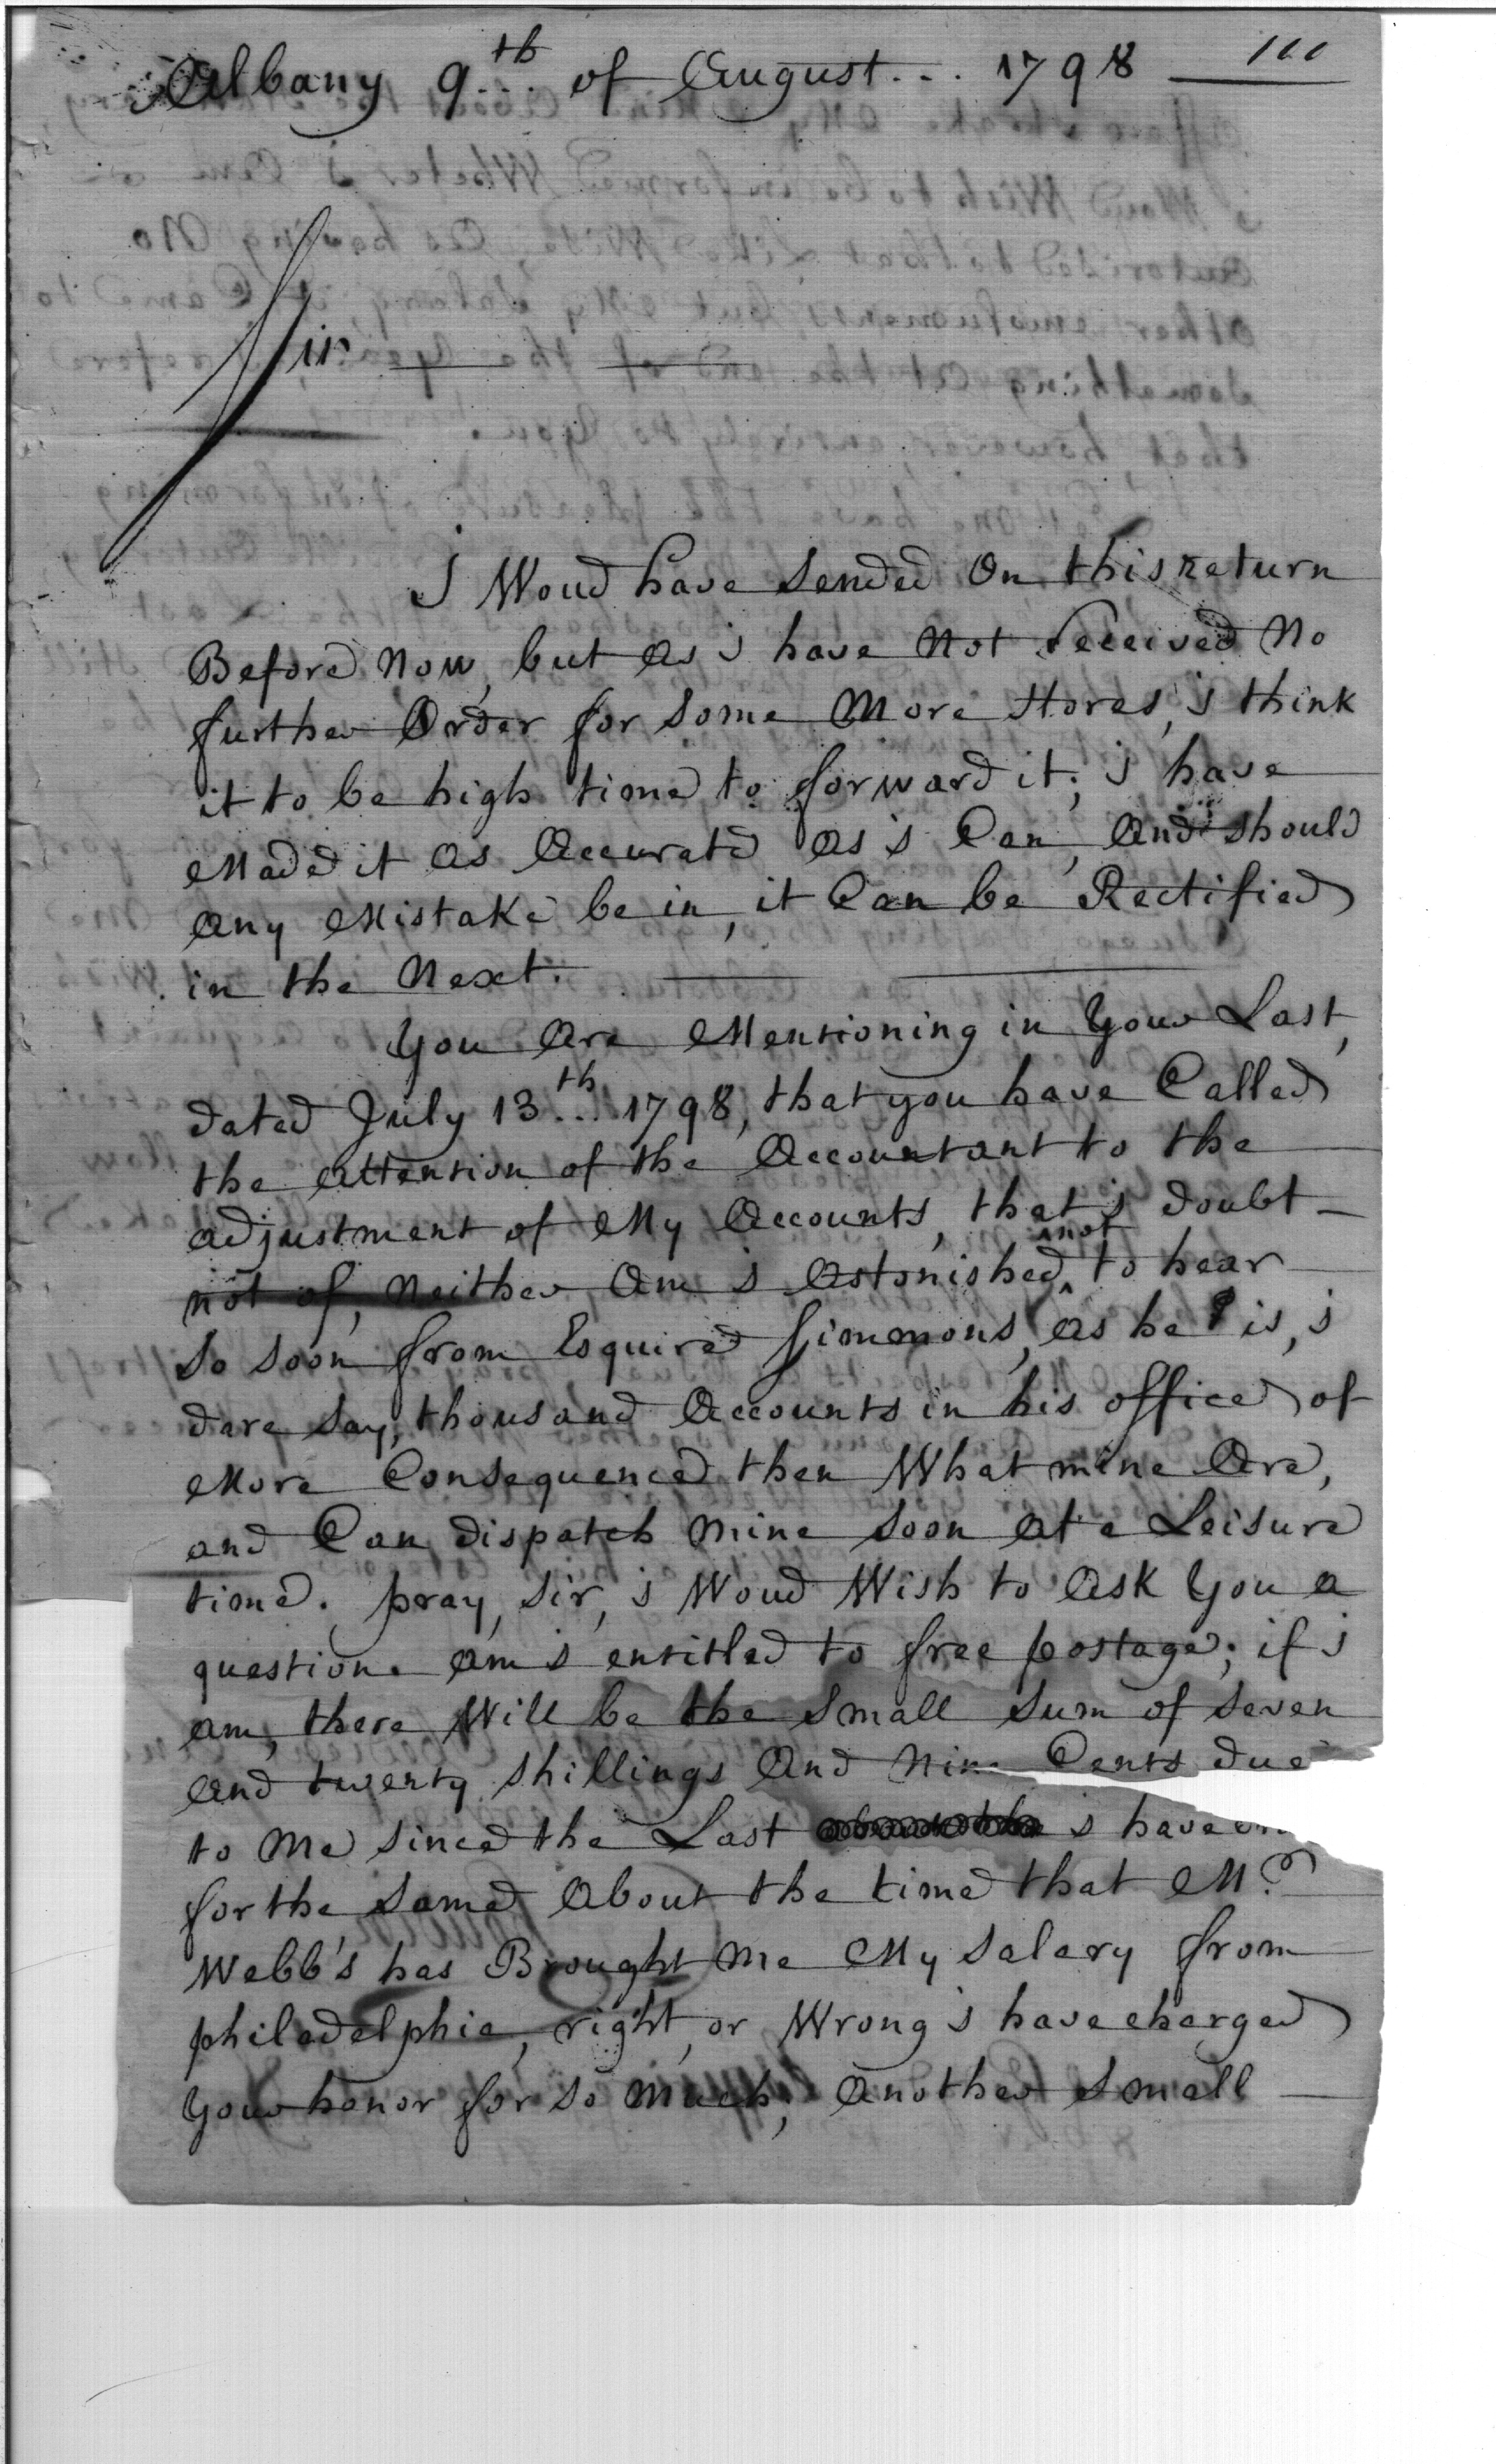 Albany 9th... of August... 1798
Sir
I Woud have Sended On this return
Before Now, but As i have Not Received No
further Order for Some More Stores, i think
it to be high time to forward it; i have
Made it As Accurate As i Can, And should
Any Mistake be in, it Can be Rectified
in the Next.
You Are Mentioning in Your Last,
dated July 13th... 1798, that you have Called
the Attention of the Accountant to the
adjustment of My Accounts, that i doubt
not of, Neither Am i Astonished, not to hear
So soon from Esquire Simmons, As he is, i
dare Say, thousand Accounts in his office of
More Consequence then What mine Are,
and Can dispatch mine Soon At a Leisure
time. pray, Sir, i Woud Wish to Ask You a
question. am i entitled to free postage; if i
am, there Will be the Small Sum of Seven
And twenty Shillings And Nine Cents due
to Me Since the Last i have
for the Same About the time that Mr.
Webb's has Brought Me My Salary from
philadelphia, right, or Wrong i have charged
Your honor for So Much; Another Small